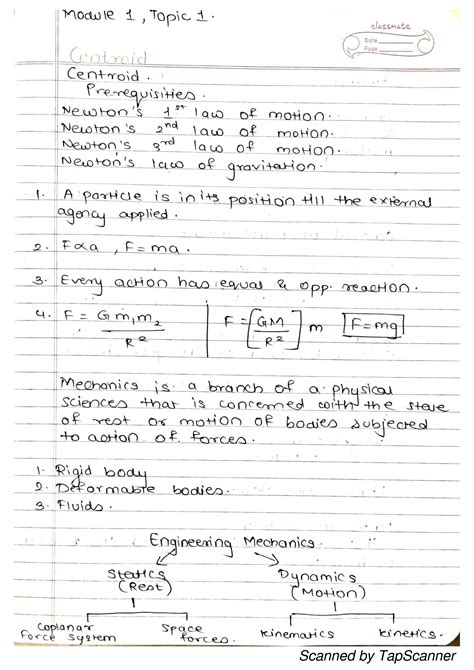 Module 1, Topic 1.
classmate
Date
Page
Centroid
Centroid.
Prerequisities.
Newton's 1st law of motion.
Newton's 2nd law of motion.
Newton's 3rd law of motion.
Newton's law of gravitation.
1. A particle is in its position till the external
agency applied.
2. F∝a, F=ma.
3. Every action has equal & opp. reaction.
4. F = G m₁m₂ / R² | F = [GM / R²] m F=mg
Mechanics is a branch of a physical
sciences that is concerned with the state
of rest or motion of bodies subjected
to action of forces.
1. Rigid body
2. Deformable bodies.
3. Fluids.
Engineering Mechanics.
Statics Dynamics
(Rest) (Motion)
Coplanar Space kinematics kinetics.
Force system forces.
Scanned by TapScanner